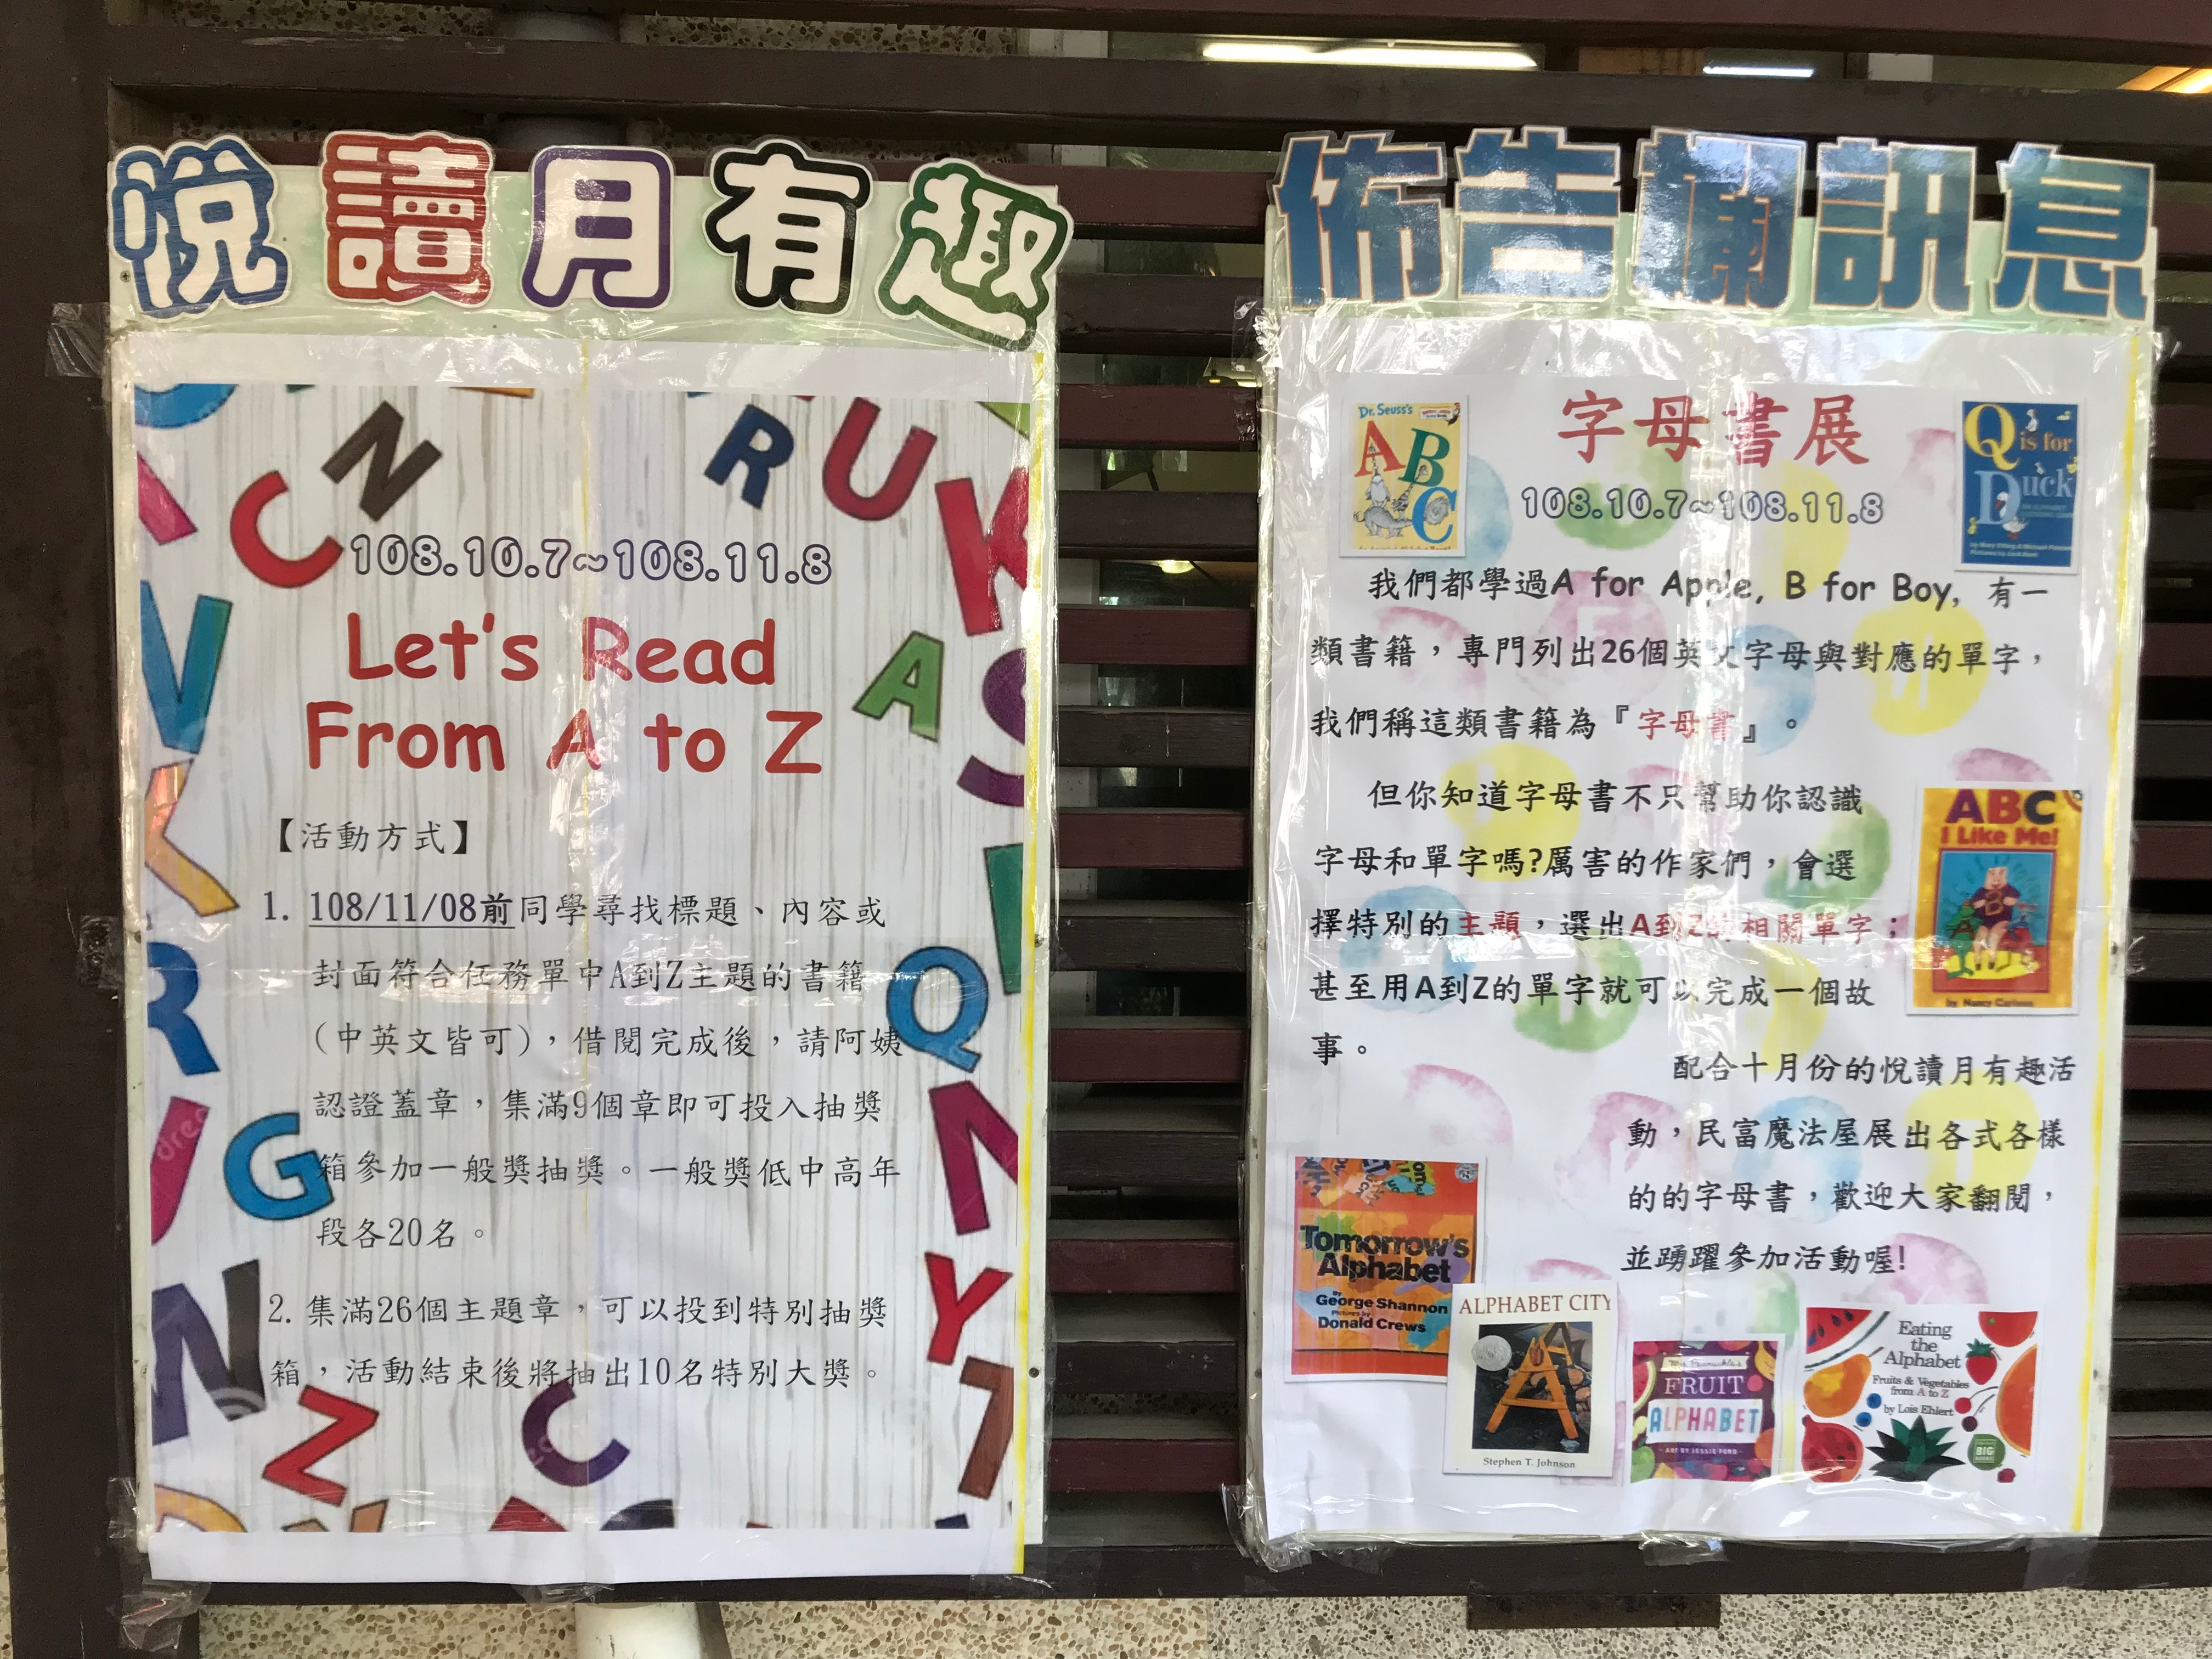 悅讀月有趣
108.10.7~108.11.8
Let's Read
From A to Z
【活動方式】
1. 108/11/08前同學尋找標題、內容或
封面符合任務單中A到Z主題的書籍
(中英文皆可)，借閱完成後，請阿姨
認證蓋章，集滿9個章即可投入抽獎
箱參加一般獎抽獎。一般獎低中高年
段各20名。
2. 集滿26個主題章，可以投到特別抽獎
箱，活動結束後將抽出10名特別大獎。
佈告欄訊息
Dr. Seuss's
ABC
字母書展
108.10.7~108.11.8
Q is for
Duck
我們都學過A for Apple, B for Boy, 有一
類書籍，專門列出26個英文字母與對應的單字，
我們稱這類書籍為『字母書』。
但你知道字母書不只幫助你認識
字母和單字嗎?厲害的作家們，會選
擇特別的主題，選出A到Z的相關單字；
甚至用A到Z的單字就可以完成一個故
事。
ABC
I Like Me!
by Nancy Carlson
配合十月份的悅讀月有趣活
動，民富魔法屋展出各式各樣
的的字母書，歡迎大家翻閱，
並踴躍參加活動喔!
Tomorrow's
Alphabet
by
George Shannon
Pictures by
Donald Crews
ALPHABET CITY
Stephen T. Johnson
FRUIT
ALPHABET
ART BY JESSIE FORD
Eating
the
Alphabet
Fruits & Vegetables
from A to Z
by Lois Ehlert
BIG
BOOKS